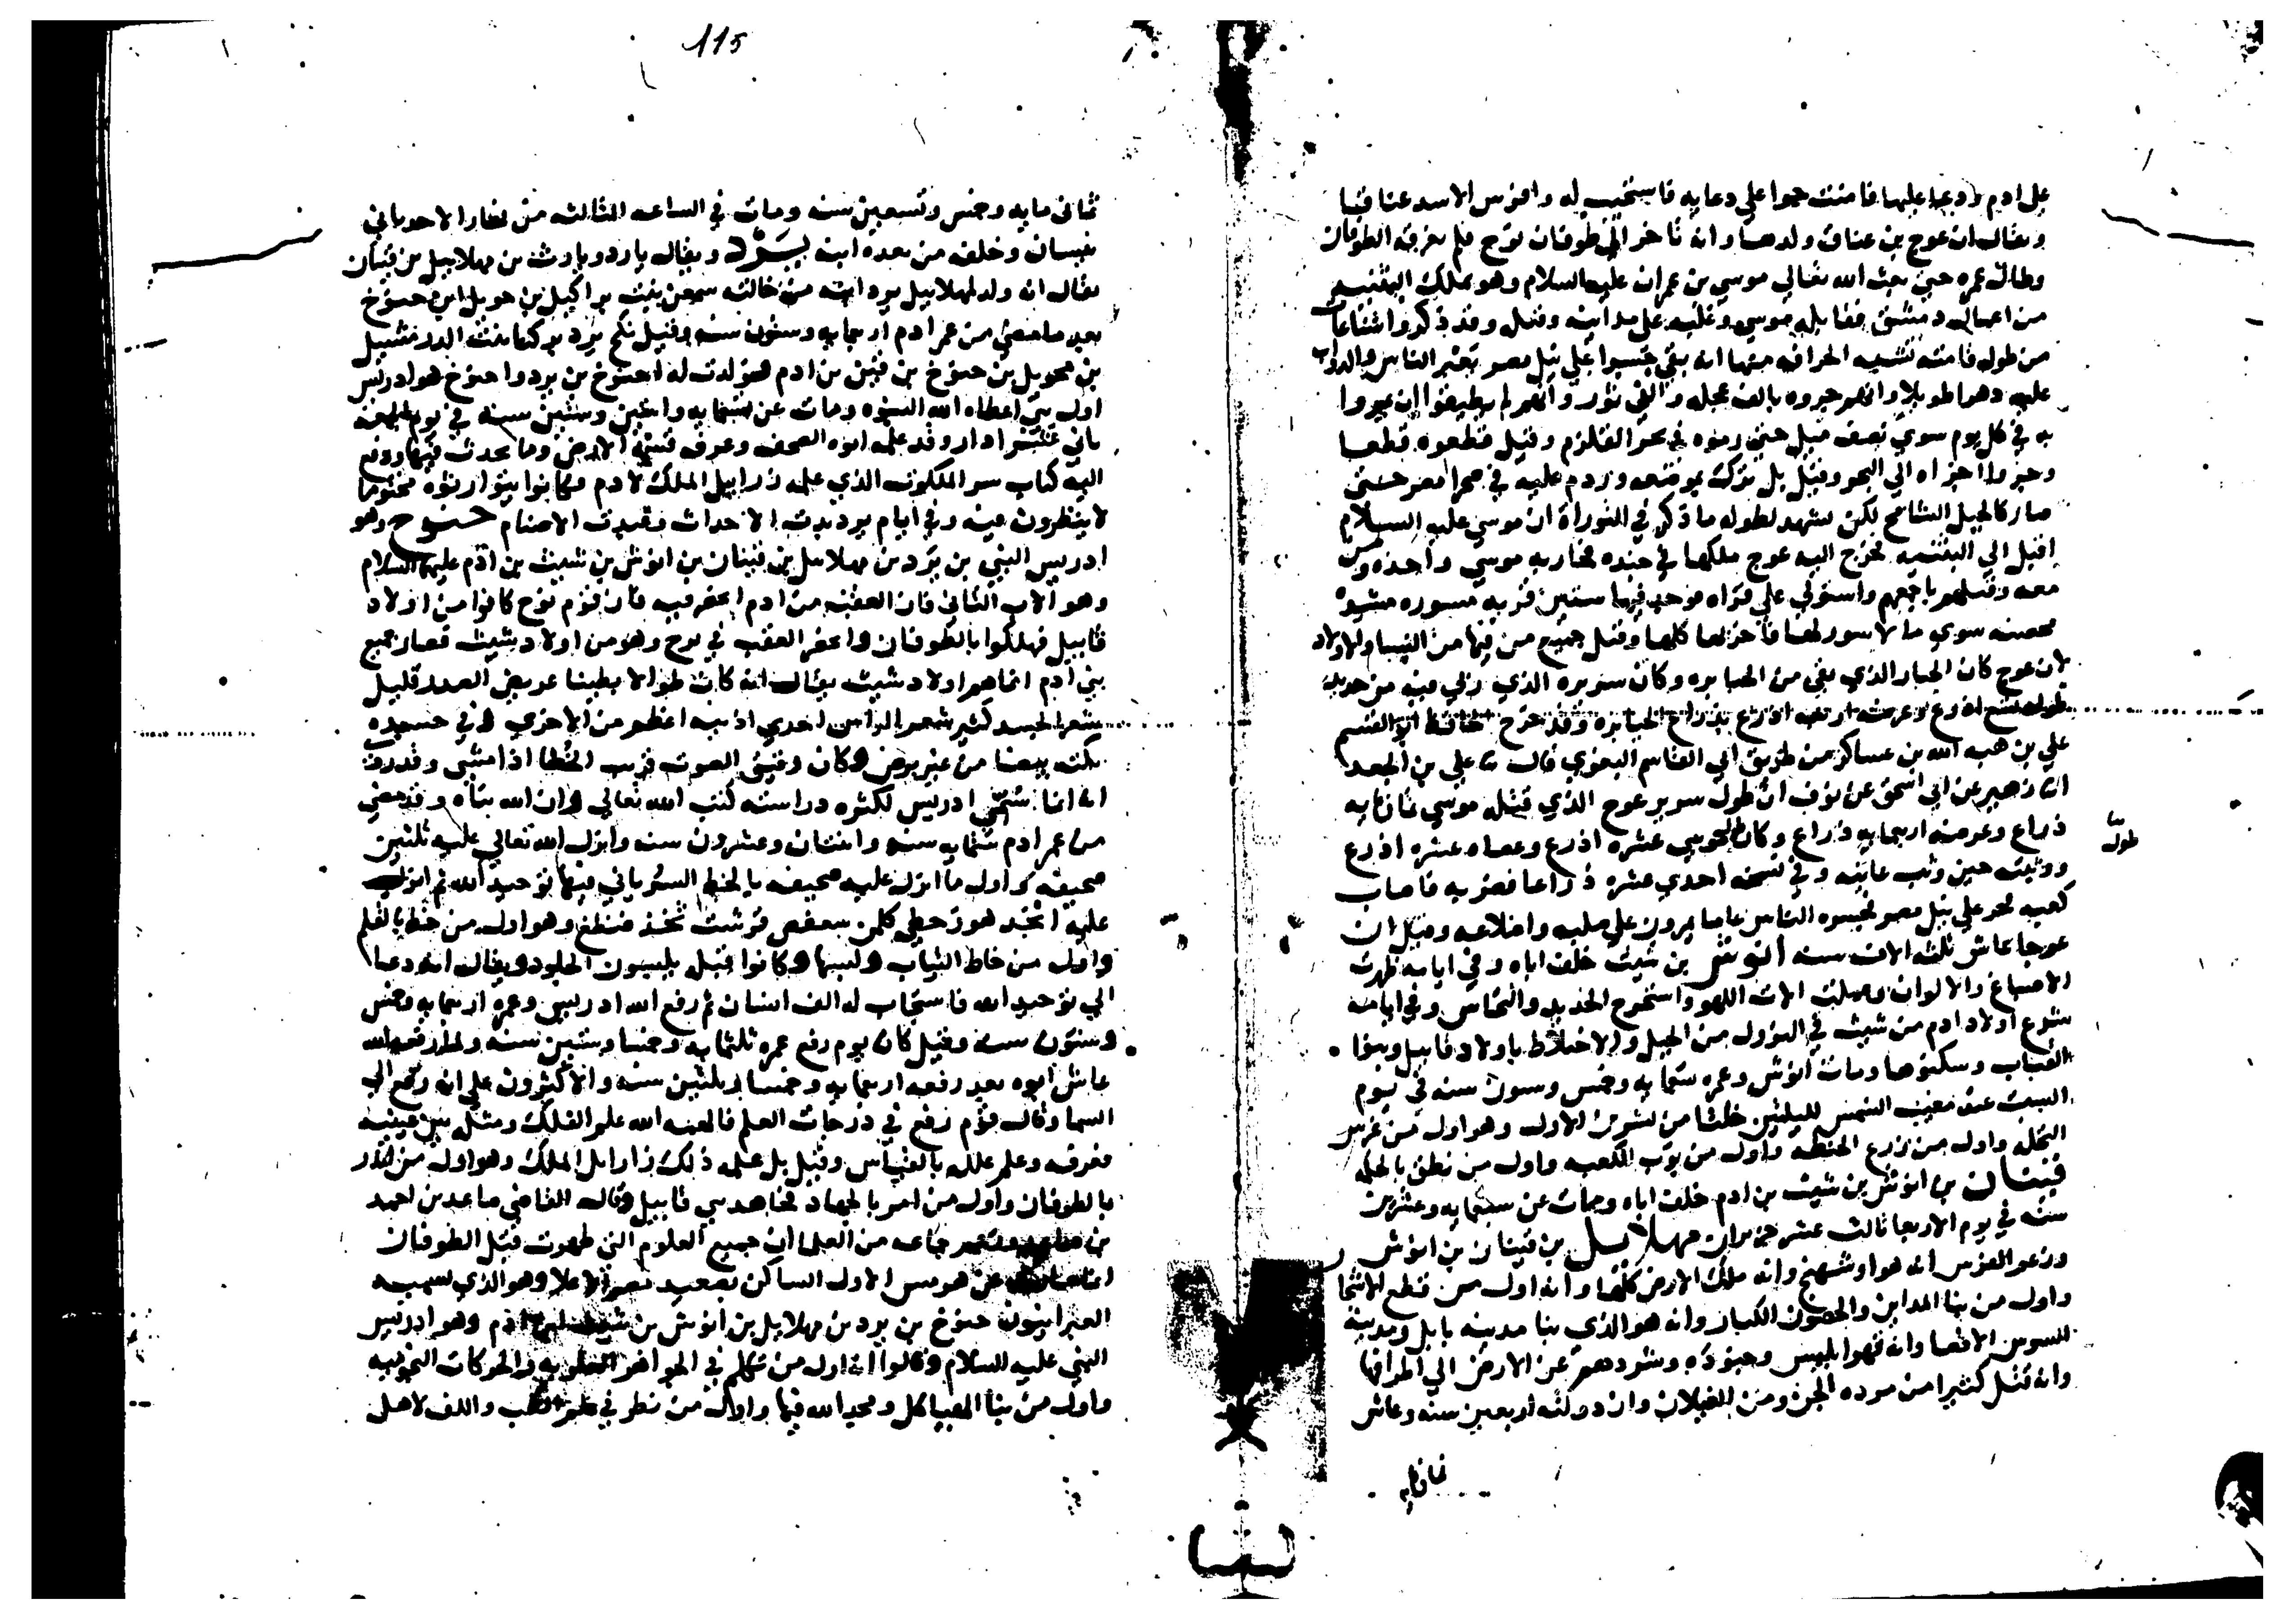 على ادم ودعا عليها فامنت حوا على دعايه فاستجيب له وافترس الاسد عناقها
ويقال ان عوج بن عناق ولدها وانه تاخر الى طوفان نوح فلم يغرقه الطوفان
وطال عمره حتى بعث الله تعالى موسى بن عمران عليه السلام وهو بملك البثنيه
من اعمال دمشق فقاتله موسى وغلبه على مداينه وقتله وقد ذكروا شناعات
من طوله قامته تشبه الخرافه منها انه بقي جسرا على نيل مصر يعبر الناس والدواب
عليه دهرا طويلا وانهم جروه بالف عجله والفي ثور وانهم لم يطيقوا ان يجروا
به في كل يوم سوى نصف ميل حتى رموه في بحر القلزم وقيل قطعوه قطعا
وجروا اجزاه الى البحر وقيل بل ترك بموضعه وردم عليه في صحرا مصر حتى
صار كالجبل الشامخ لكن يشهد لطوله ما ذكر في التوراة ان موسى عليه السلام
اقبل الى البثنيه فخرج اليه عوج ملكها في جنده فحاربه موسى واخذه ومن
معه وقتلهم باجمعهم واستولى على قراه فوجد فيها ستين قريه مسوره مشيده
محصنه سوى ما لا سور لها فاخربها كلها وقتل جميع من فيها من النسا والاولاد
لان عوج كان الجبار الذي بقي من الجبابره وكان سريره الذي ربي فيه من حديد
طوله تسع اذرع وعرضه اربعه اذرع بذراع الجبابره وقد خرج الحافظ ابو القسم
علي بن هبه الله بن عساكر من طريق ابي القاسم البغوي قال ثنا علي بن الجعد
انا زهير عن ابي اسحق عن نوف ان طول سرير عوج الذي قتله موسى ثمانمايه
ذراع وعرضه اربعمايه ذراع وكان طول موسى عشره اذرع وعصاه عشره اذرع
ووثبته حين وثب عليه وفي نسخه احدى عشره ذراعا فضربه فاصاب
كعبه فخر على نيل مصر فجسره الناس عاما يمرون على صلبه واضلاعه وقيل ان
عوجا عاش ثلثه الاف سنه انوش بن شيث خلف اباه وفي ايامه ظهرت
الاصباغ والالوان وعملت الات اللهو واستخرج الحديد والنحاس وفي ايامه
شرع اولاد ادم من شيث في النزول من الجبل والاختلاط باولاد قابيل وبنوا
القباب وسكنوها ومات انوش وعمره ستمايه وخمس وستون سنه في يوم
السبت عند مغيب الشمس لليلتين خلتا من تشرين الاول وهو اول من غرس
النخله واول من زرع الحنطه واول من بوب الكعبه واول من نطق بالحكمه
قينان بن انوش بن شيث بن ادم خلف اباه ومات عن سبعمايه وعشرين
سنه في يوم الاربعا ثالث عشر حزيران مهلاييل بن قينان بن انوش
وزعم الفرس انه هو اوشهنج وانه ملك الارض كلها وانه اول من قطع الاشجار
واول من بنا المداين والحصون الكبار وانه هو الذي بنا مدينه بابل ومدينه
السوس الاقصا وانه قهر ابليس وجنوده وشردهم عن الارض الى اطرافها
وانه قتل كثيرا من مرده الجن ومن الغيلان وان دولته اربعين سنه وعاش
ثمانمايه
طول
115
ثمانى مايه وخمس وتسعين سنه ومات في الساعه الثالثه من نهار الاحد ثاني
نيسان وخلف من بعده ابنه يَرْد ويقال يارد ويارث بن مهلاييل بن قينان
يقال انه ولد لمهلاييل يرد ابنه من خالته سمعن بنت براكيل بن حويل ابن حنوخ
بعد ما مضى من عمر ادم اربعمايه وستون سنه وقيل نكح يرد بركنا بنت الدرمشيل
بن محويل بن حنوخ بن قين بن ادم فولدت له اخنوخ بن يرد واخنوخ هو ادريس
اول نبي اعطاه الله النبوه ومات عن تسعمايه واثنين وستين سنه في يوم الجمعه
ثاني عشر اذار وقد علمه ابوه الصحف وعرف قسمه الارض وما يحدث فيها ودفع
اليه كتاب سر الملكوت الذي علمه زراييل الملك لادم وكانوا يتوارثوه مختوما
لا ينظرون فيه وفي ايام يرد بدت الاحداث وعبدت الاصنام حنوخ وهو
ادريس النبي بن يرد بن مهلاييل بن قينان بن انوش بن شيث بن ادم عليهم السلام
وهو الاب الثاني فان العقب من ادم انحصر فيه فان قوم نوح كانوا من اولاد
قابيل فهلكوا بالطوفان وانحصر العقب في نوح وهو من اولاد شيث فصار جميع
بني ادم انما هم اولاد شيث يقال انه كان طوالا بطينا عريض الصدر قليل
شعر الجسد كثير شعر الراس احدى اذنيه اعظم من الاخرى وفي جسده
نكته بيضا من غير برص وكان رقيق الصوت قريب الخطا اذا مشى وقد روي
انه انما سمي ادريس لكثره دراسته كتب الله تعالى وان الله نباه وقد مضى
من عمر ادم ستمايه سنه واثنتان وعشرون سنه وانزل الله تعالى عليه ثلثين
صحيفه واول ما انزل عليه صحيفه بالخط السرياني فيها توحيد الله ثم انزل
عليه ابجد هوز حطي كلمن سعفص قرشت ثخذ ضظغ وهو اول من خط بالقلم
واول من خاط الثياب ولبسها وكانوا قبله يلبسون الجلود ويقال انه دعا
الى توحيد الله فاستجاب له الف انسان ثم رفع الله ادريس وعمره اربعمايه وخمس
وستون سنه وقيل كان يوم رفع عمره ثلثمايه وخمسا وستين سنه ولما رفعه الله
عاش ابوه بعد رفعه اربعمايه وخمسا وثلثين سنه والاكثرون على انه رفع الى
السما وقال قوم رفع في درجات العلم فالهمه الله علم الفلك ومثله بين عينيه
فعرفه وعلم علله بالقياس وقيل بل علمه ذلك زاراييل الملك وهو اول من انذر
بالطوفان واول من امر بالجهاد فجاهد بني قابيل وقال القاضي صاعد بن احمد
بن صاعد وزعم جماعه من العلما ان جميع العلوم التي ظهرت قبل الطوفان
انما صدرت عن هرمس الاول الساكن بصعيد مصر الاعلا وهو الذي يسميه
العبرانيون حنوخ بن يرد بن مهلاييل بن انوش بن شيث بن ادم وهو ادريس
النبي عليه السلام وقالوا انه اول من تكلم في الجواهر العلويه والحركات النجوميه
واول من بنا الهياكل ومجد الله فيها واول من نظر في علم الطب والف لاهل